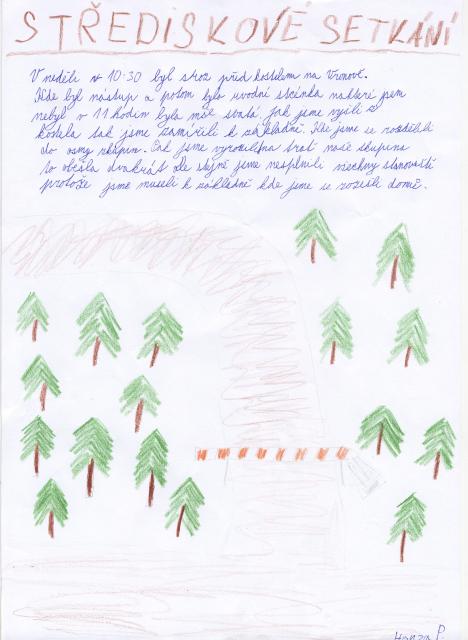 STŘEDISKOVÉ SETKÁNÍ
V neděli v 10·30 byl sraz před kostelem na Vranově.
Kde byl nástup a potom byla uvodní scénka na které jsem
nebyl v 11 hodin byla mše svatá. Jak jsme vyšli z
kostela tak jsme zamířili k základně. Kde jsme se rozdělili
do osmy skupin. Cel jsme trať naše skupina
to oběšla dvakrát ale stejně jsme nesplnili všechny stanoviště
protože jsme museli k základně kde jsme se rozešli domů.
Honza P.